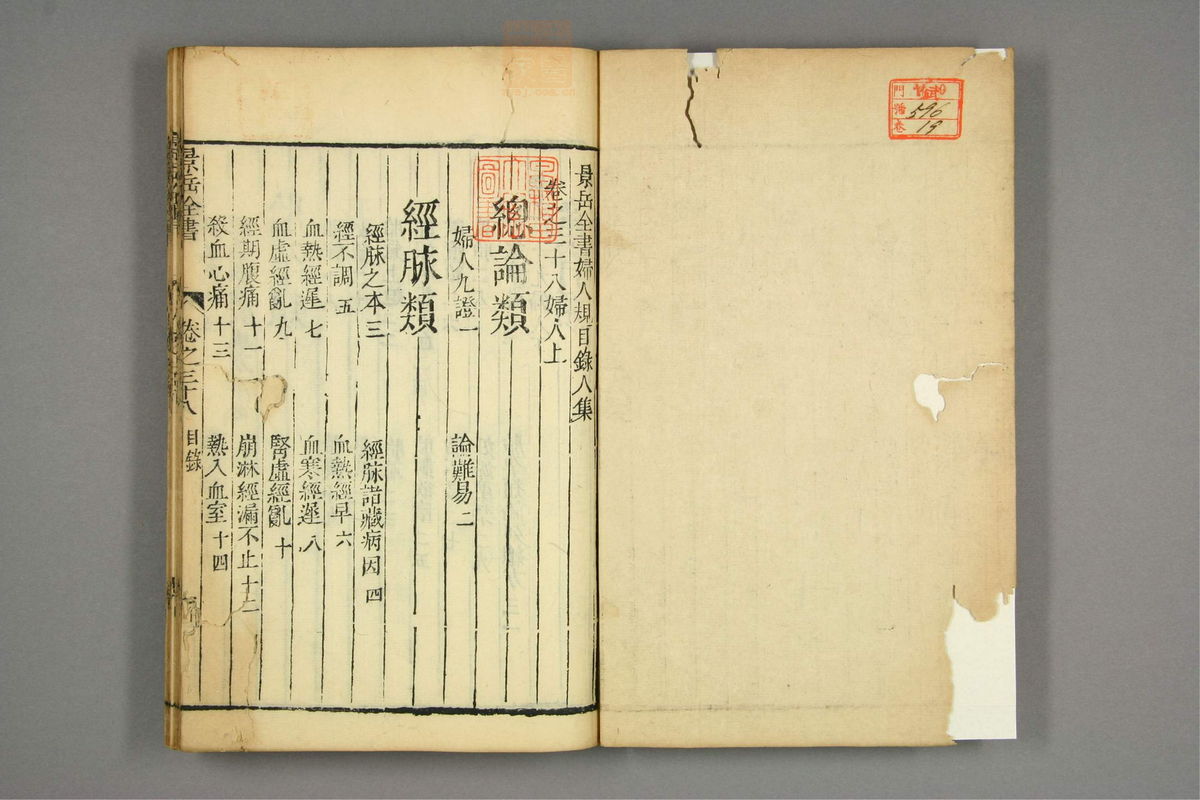 景岳全書婦人規目錄人集
卷之三十八婦人上
總論類
婦人九證 一
論難易 二
經脉類
經脉之本 三
經脉諸臟病因 四
經不調 五
血熱經早 六
血熱經遲 七
血寒經遲 八
血虛經亂 九
腎虛經亂 十
經期腹痛 十一
崩淋經漏不止 十二
殺血心痛 十三
熱入血室 十四
景岳全書
卷之三十八
目錄
門
番
卷
596
19